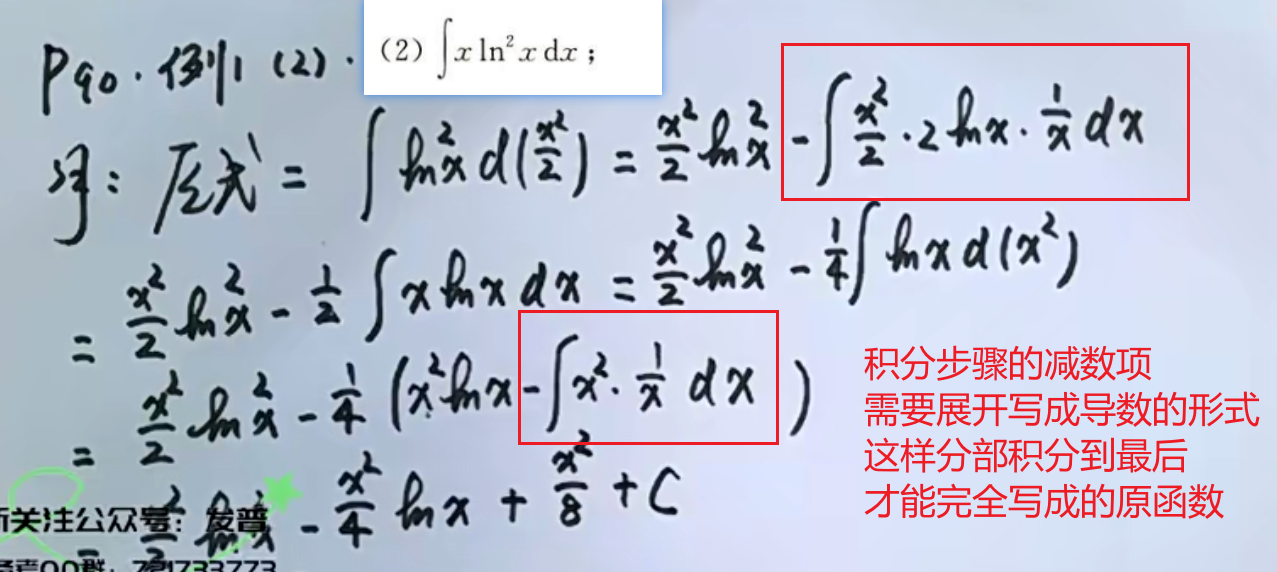 P90. 例1 (2).
(2) ∫x ln²x dx；
解: 原式 = ∫ ln²x d(x²/2) = x²/2 ln²x - ∫ x²/2 · 2 lnx · 1/x dx
= x²/2 ln²x - 1/2 ∫ x lnx dx = x²/2 ln²x - 1/4 ∫ lnx d(x²)
= x²/2 ln²x - 1/4 (x² lnx - ∫ x² · 1/x dx)
= x²/2 ln²x - x²/4 lnx + x²/8 + C
积分步骤的减数项
需要展开写成导数的形式
这样分部积分到最后
才能完全写成的原函数
关注公众号：发普
QQ群：721733773